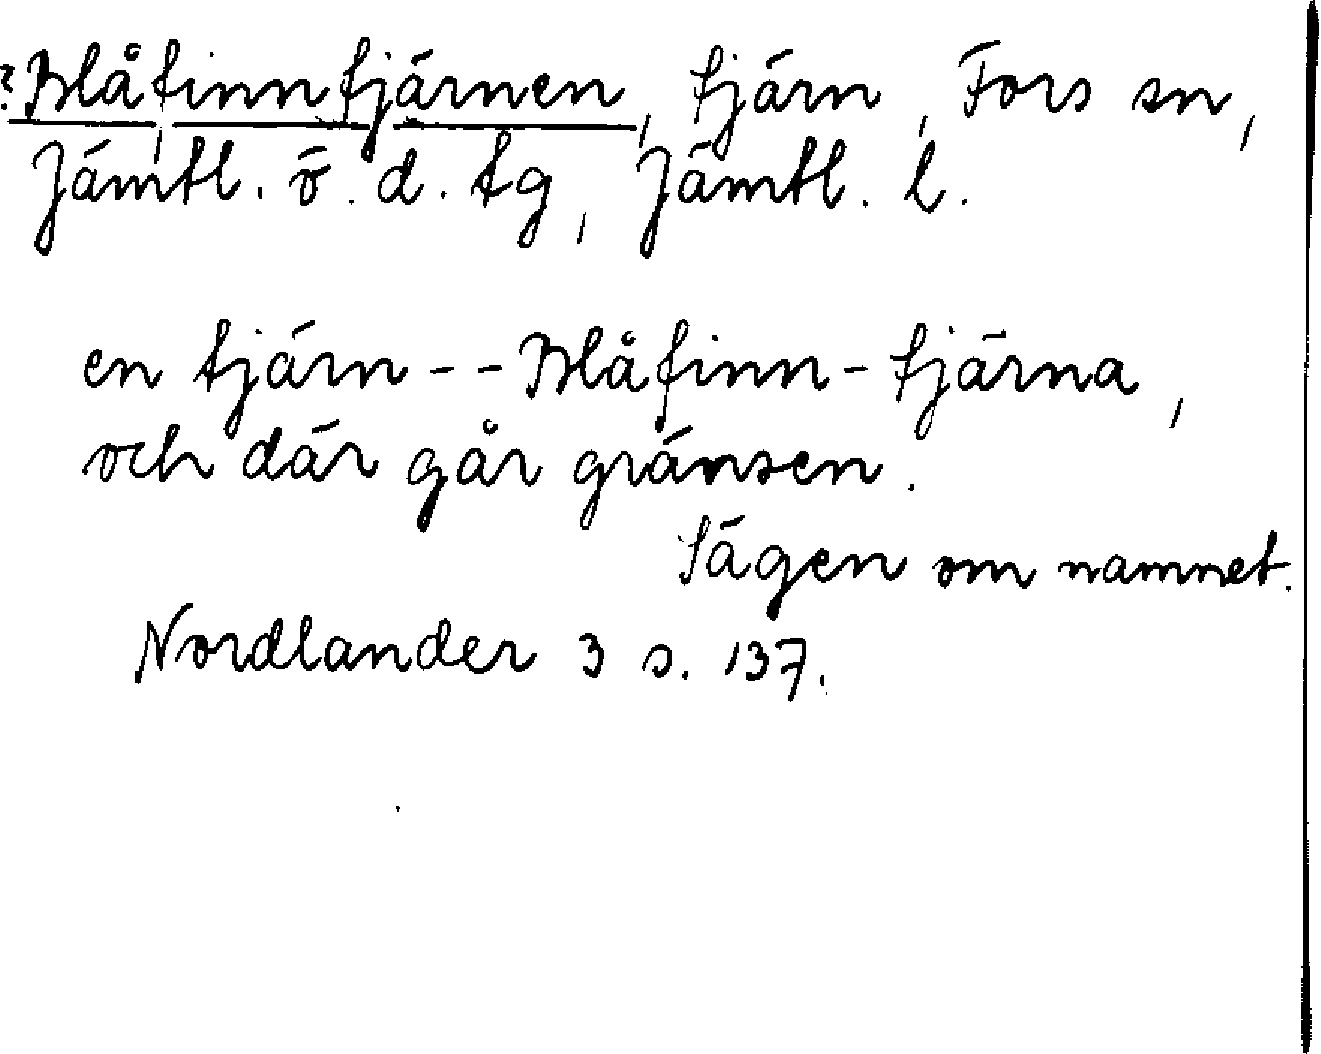 ?Blåfinntjärnen, tjärn, Fors sn,
Jämtl. ö. d. tg, Jämtl. l.
en tjärn -- Blåfinn-tjärna,
och där går gränsen.
Sägen om namnet.
Nordlander 3 s. 137.